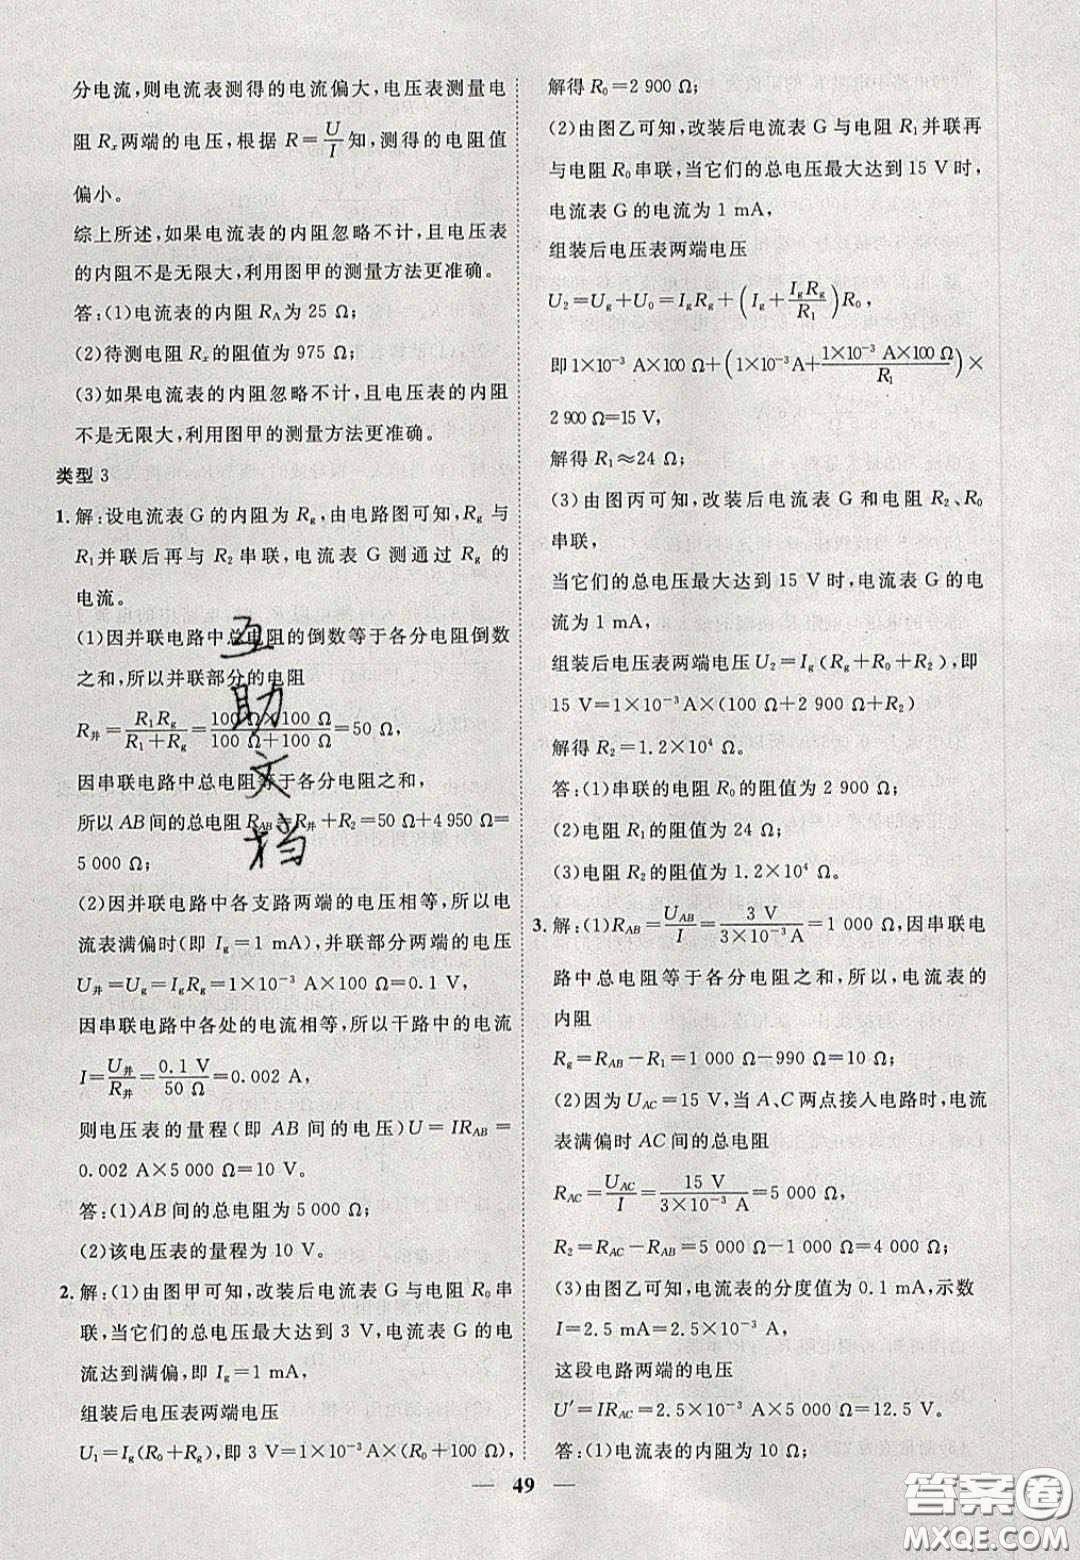 分电流,则电流表测得的电流偏大,电压表测量电
阻 Rx两端的电压,根据 R=U/I知,测得的电阻值
偏小。
综上所述,如果电流表的内阻忽略不计,且电压表
的内阻不是无限大,利用图甲的测量方法更准确。
答:(1)电流表的内阻 RA为 25 Ω;
(2)待测电阻 Rx的阻值为 975 Ω;
(3)如果电流表的内阻忽略不计,且电压表的内阻
不是无限大,利用图甲的测量方法更准确。
类型 3
1.解:设电流表 G 的内阻为 Rg,由电路图可知,Rg 与
R1并联后再与 R2 串联,电流表 G 测通过 Rg 的
电流。
(1)因并联电路中总电阻的倒数等于各分电阻倒数
之和,所以并联部分的电阻
R并=R1Rg/(R1+Rg)=(100 Ω×100 Ω)/(100 Ω+100 Ω)=50 Ω,
因串联电路中总电阻等于各分电阻之和,
所以 AB 间的总电阻 RAB=R并+R2=50 Ω+4 950 Ω=
5 000 Ω;
(2)因并联电路中各支路两端的电压相等,所以电
流表满偏时(即 Ig=1 mA),并联部分两端的电压
U并=Ug=IgRg=1×10⁻³ A×100 Ω=0.1 V,
因串联电路中各处的电流相等,所以干路中的电流
I=U并/R并=0.1 V/50 Ω=0.002 A,
则电压表的量程(即 AB 间的电压)U=IRAB=
0.002 A×5 000 Ω=10 V。
答:(1)AB 间的总电阻为 5 000 Ω;
(2)该电压表的量程为 10 V。
2.解:(1)由图甲可知,改装后电流表 G 与电阻 R0串
联,当它们的总电压最大达到 3 V 时,电流表 G 的电
流达到满偏,即 Ig=1 mA,
组装后电压表两端电压
U1=Ig(R0+Rg),即 3 V=1×10⁻³ A×(R0+100 Ω),
解得 R0=2 900 Ω;
(2)由图乙可知,改装后电流表 G 与电阻 R1并联再
与电阻 R0串联,当它们的总电压最大达到 15 V 时,
电流表 G 的电流为 1 mA,
组装后电压表两端电压
U2=Ug+U0=IgRg+(Ig+IgRg/R1)R0,
即 1×10⁻³ A×100 Ω+(1×10⁻³A+(1×10⁻³ A×100 Ω)/R1)×
2 900 Ω=15 V,
解得 R1≈24 Ω;
(3)由图丙可知,改装后电流表 G 和电阻 R2、R0
串联,
当它们的总电压最大达到 15 V 时,电流表 G 的电
流为 1 mA,
组装后电压表两端电压 U2=Ig(Rg+R0+R2),即
15 V=1×10⁻³A×(100 Ω+2 900 Ω+R2)
解得 R2=1.2×10⁴ Ω。
答:(1)串联的电阻 R0的阻值为 2 900 Ω;
(2)电阻 R1的阻值为 24 Ω;
(3)电阻 R2的阻值为 1.2×10⁴ Ω。
3.解:(1)RAB=UAB/I=3 V/(3×10⁻³A)=1 000 Ω,因串联电
路中总电阻等于各分电阻之和,所以,电流表的
内阻
Rg=RAB-R1=1 000 Ω-990 Ω=10 Ω;
(2)因为 UAC=15 V,当 A、C 两点接入电路时,电流
表满偏时 AC 间的总电阻
RAC=UAC/I=15 V/(3×10⁻³ A)=5 000 Ω,
R2=RAC-RAB=5 000 Ω-1 000 Ω=4 000 Ω;
(3)由图乙可知,电流表的分度值为 0.1 mA,示数
I=2.5 mA=2.5×10⁻³ A,
这段电路两端的电压
U′=IRAC=2.5×10⁻³ A×5 000 Ω=12.5 V。
答:(1)电流表的内阻为 10 Ω;
— 49 —
互助文档
答案圈
MXQE.COM